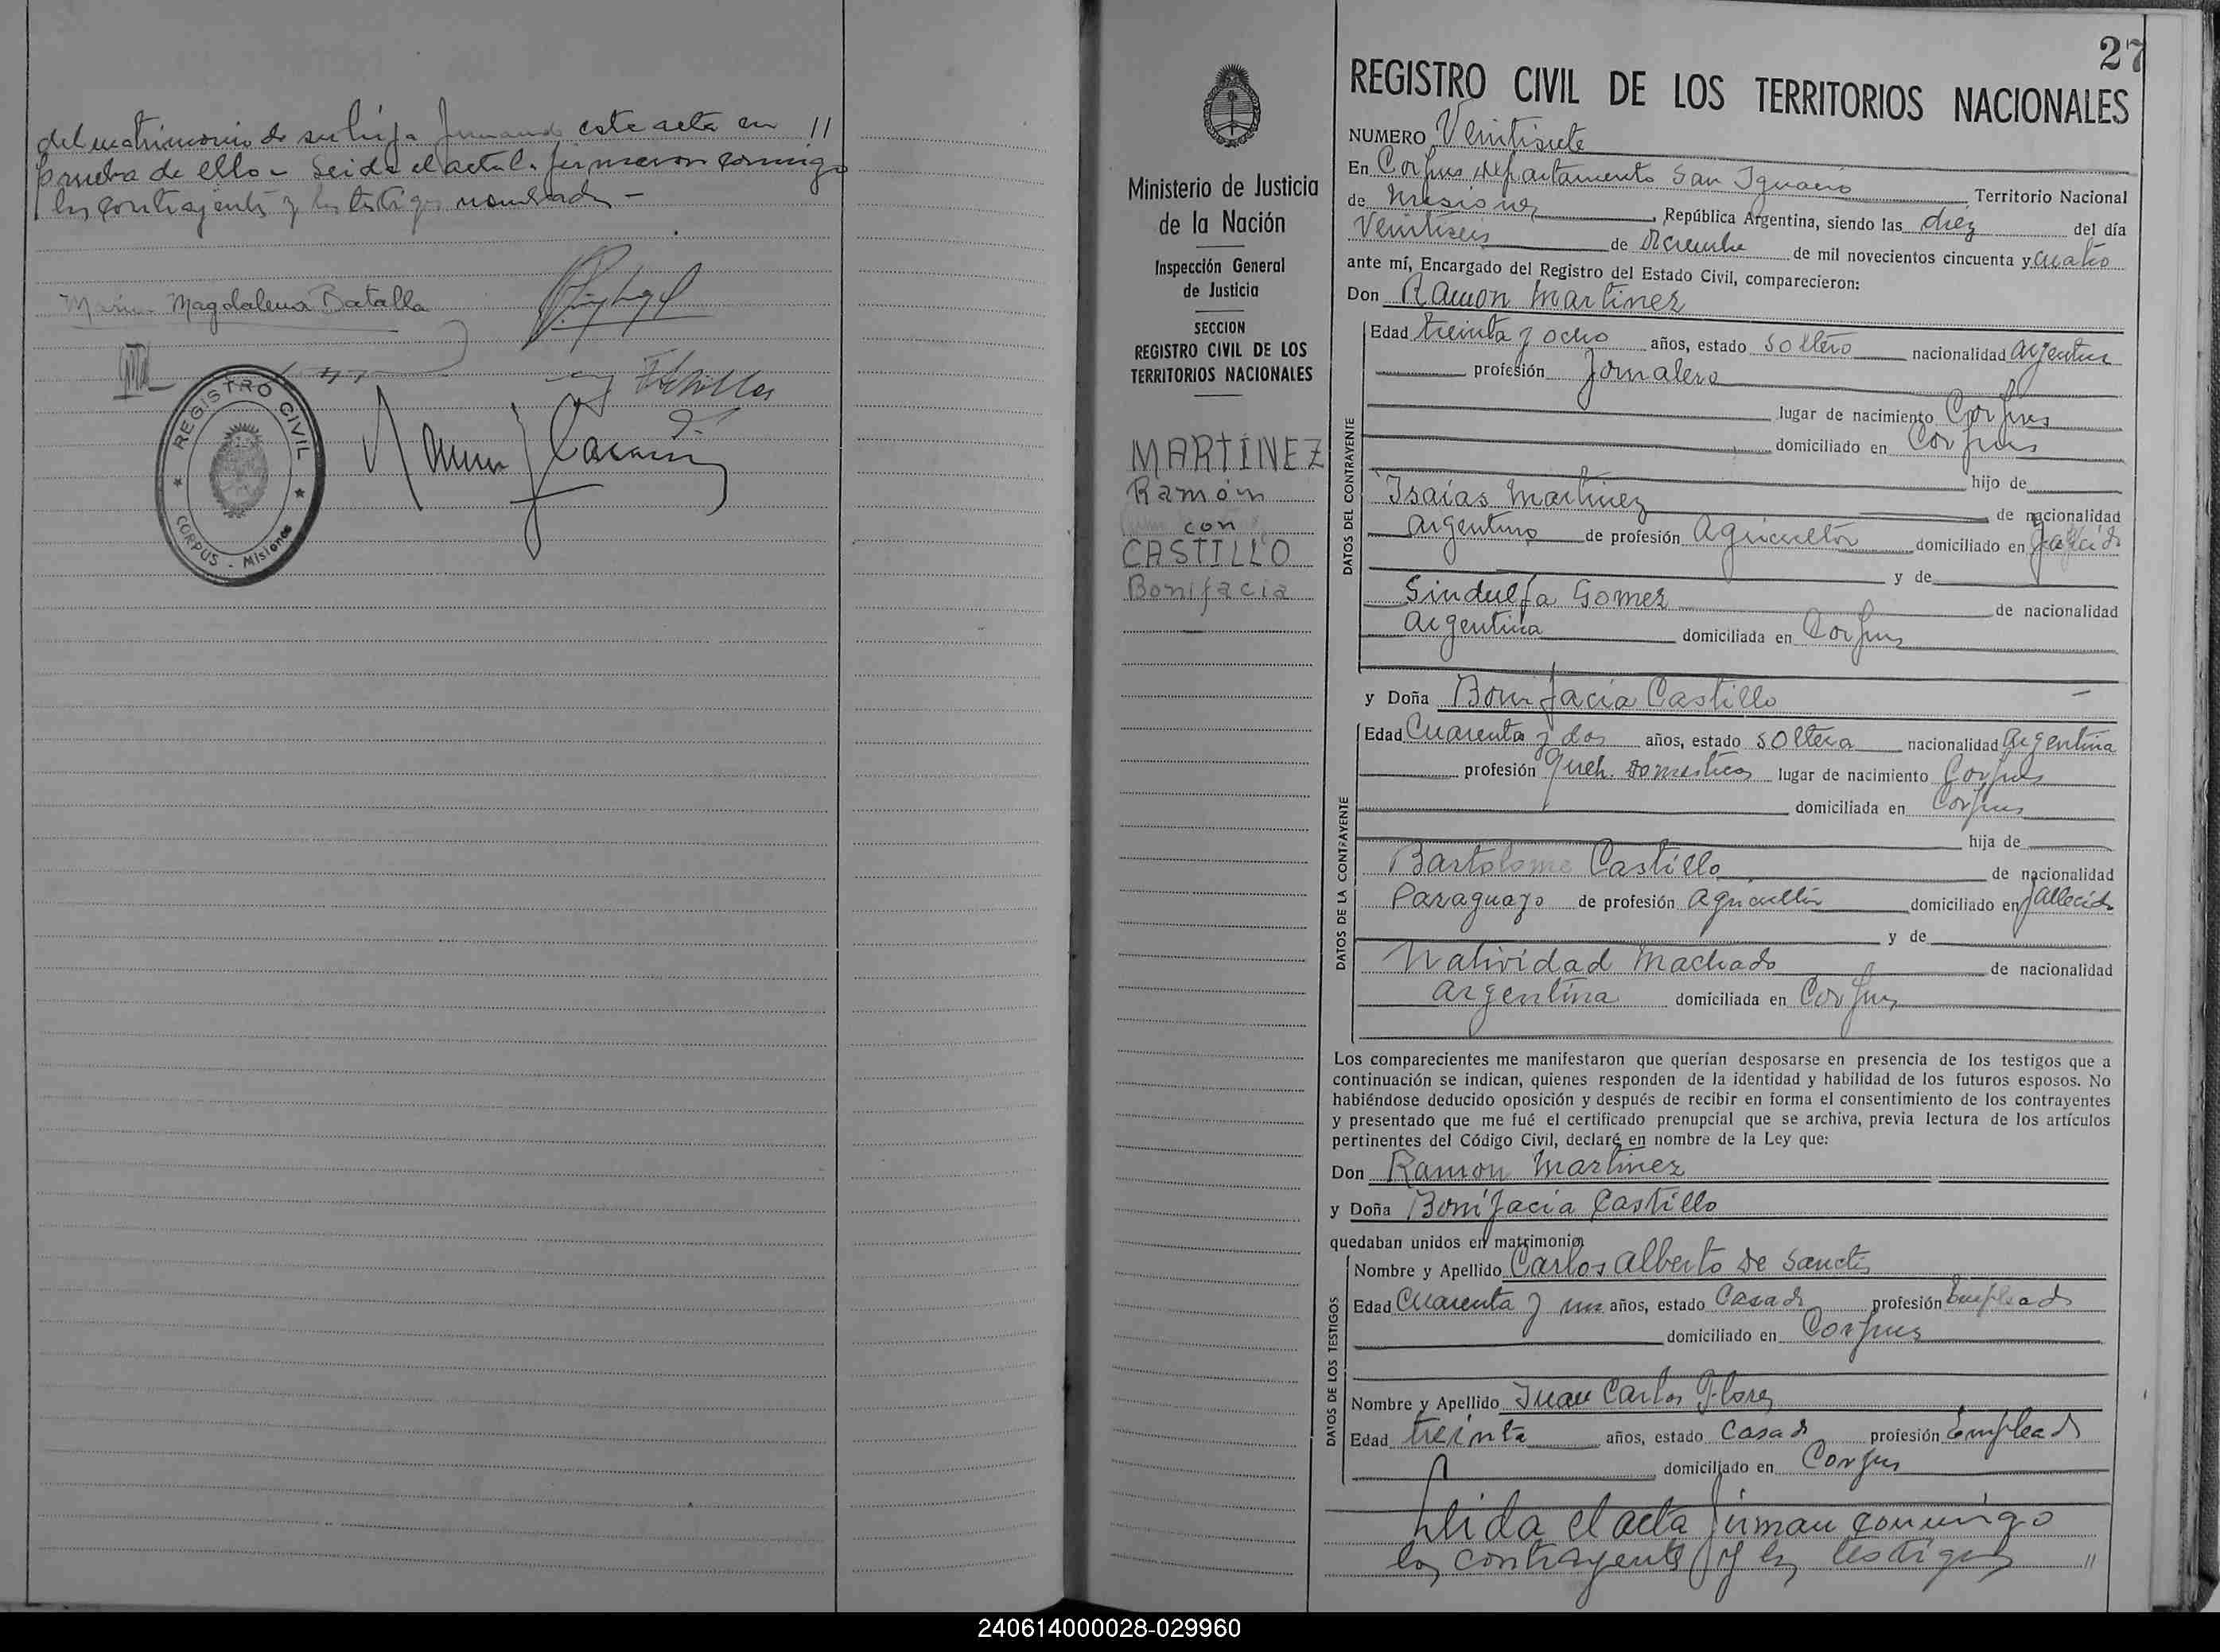 del matrimonio de su hija firmando este acta en //
prueba de ello - Leida el acta la firmaron conmigo
los contrayentes y los testigos nombrados -
Maria Magdalena Batalla
REGISTRO CIVIL
CORPUS - Misiones
27
REGISTRO CIVIL DE LOS TERRITORIOS NACIONALES
Ministerio de Justicia
de la Nación
Inspección General
de Justicia
SECCION
REGISTRO CIVIL DE LOS
TERRITORIOS NACIONALES
MARTÍNEZ
Ramón
con
CASTILLO
Bonifacia
NUMERO Veintisiete
En Corpus departamento San Ignacio Territorio Nacional
de Misiones, República Argentina, siendo las diez del día
Veintiseis de Diciembre de mil novecientos cincuenta y cuatro
ante mí, Encargado del Registro del Estado Civil, comparecieron:
Don Ramon Martinez
DATOS DEL CONTRAYENTE
Edad treinta y ocho años, estado soltero nacionalidad argentina
profesión Jornalero
lugar de nacimiento Corpus
domiciliado en Corpus
hijo de
Isaías Martinez de nacionalidad
argentino de profesión Agricultor domiciliado en fallecido
y de
Sindulfa Gomez de nacionalidad
argentina domiciliada en Corpus
y Doña Bonifacia Castillo
DATOS DE LA CONTRAYENTE
Edad Cuarenta y dos años, estado soltera nacionalidad Argentina
profesión Queh. Domesticos lugar de nacimiento Corpus
domiciliada en Corpus
hija de
Bartolome Castillo de nacionalidad
Paraguayo de profesión agricultor domiciliado en fallecido
y de
Natividad Machado de nacionalidad
argentina domiciliada en Corpus
Los comparecientes me manifestaron que querían desposarse en presencia de los testigos que a
continuación se indican, quienes responden de la identidad y habilidad de los futuros esposos. No
habiéndose deducido oposición y después de recibir en forma el consentimiento de los contrayentes
y presentado que me fué el certificado prenupcial que se archiva, previa lectura de los artículos
pertinentes del Código Civil, declaré en nombre de la Ley que:
Don Ramon Martinez
y Doña Bonifacia Castillo
quedaban unidos en matrimonio
DATOS DE LOS TESTIGOS
Nombre y Apellido Carlos Alberto De Sanctis
Edad Cuarenta y un años, estado Casado profesión Empleado
domiciliado en Corpus
Nombre y Apellido Juan Carlos Flores
Edad treinta años, estado Casado profesión Empleado
domiciliado en Corpus
Leida el acta firman conmigo
los contrayentes y los testigos //
240614000028-029960